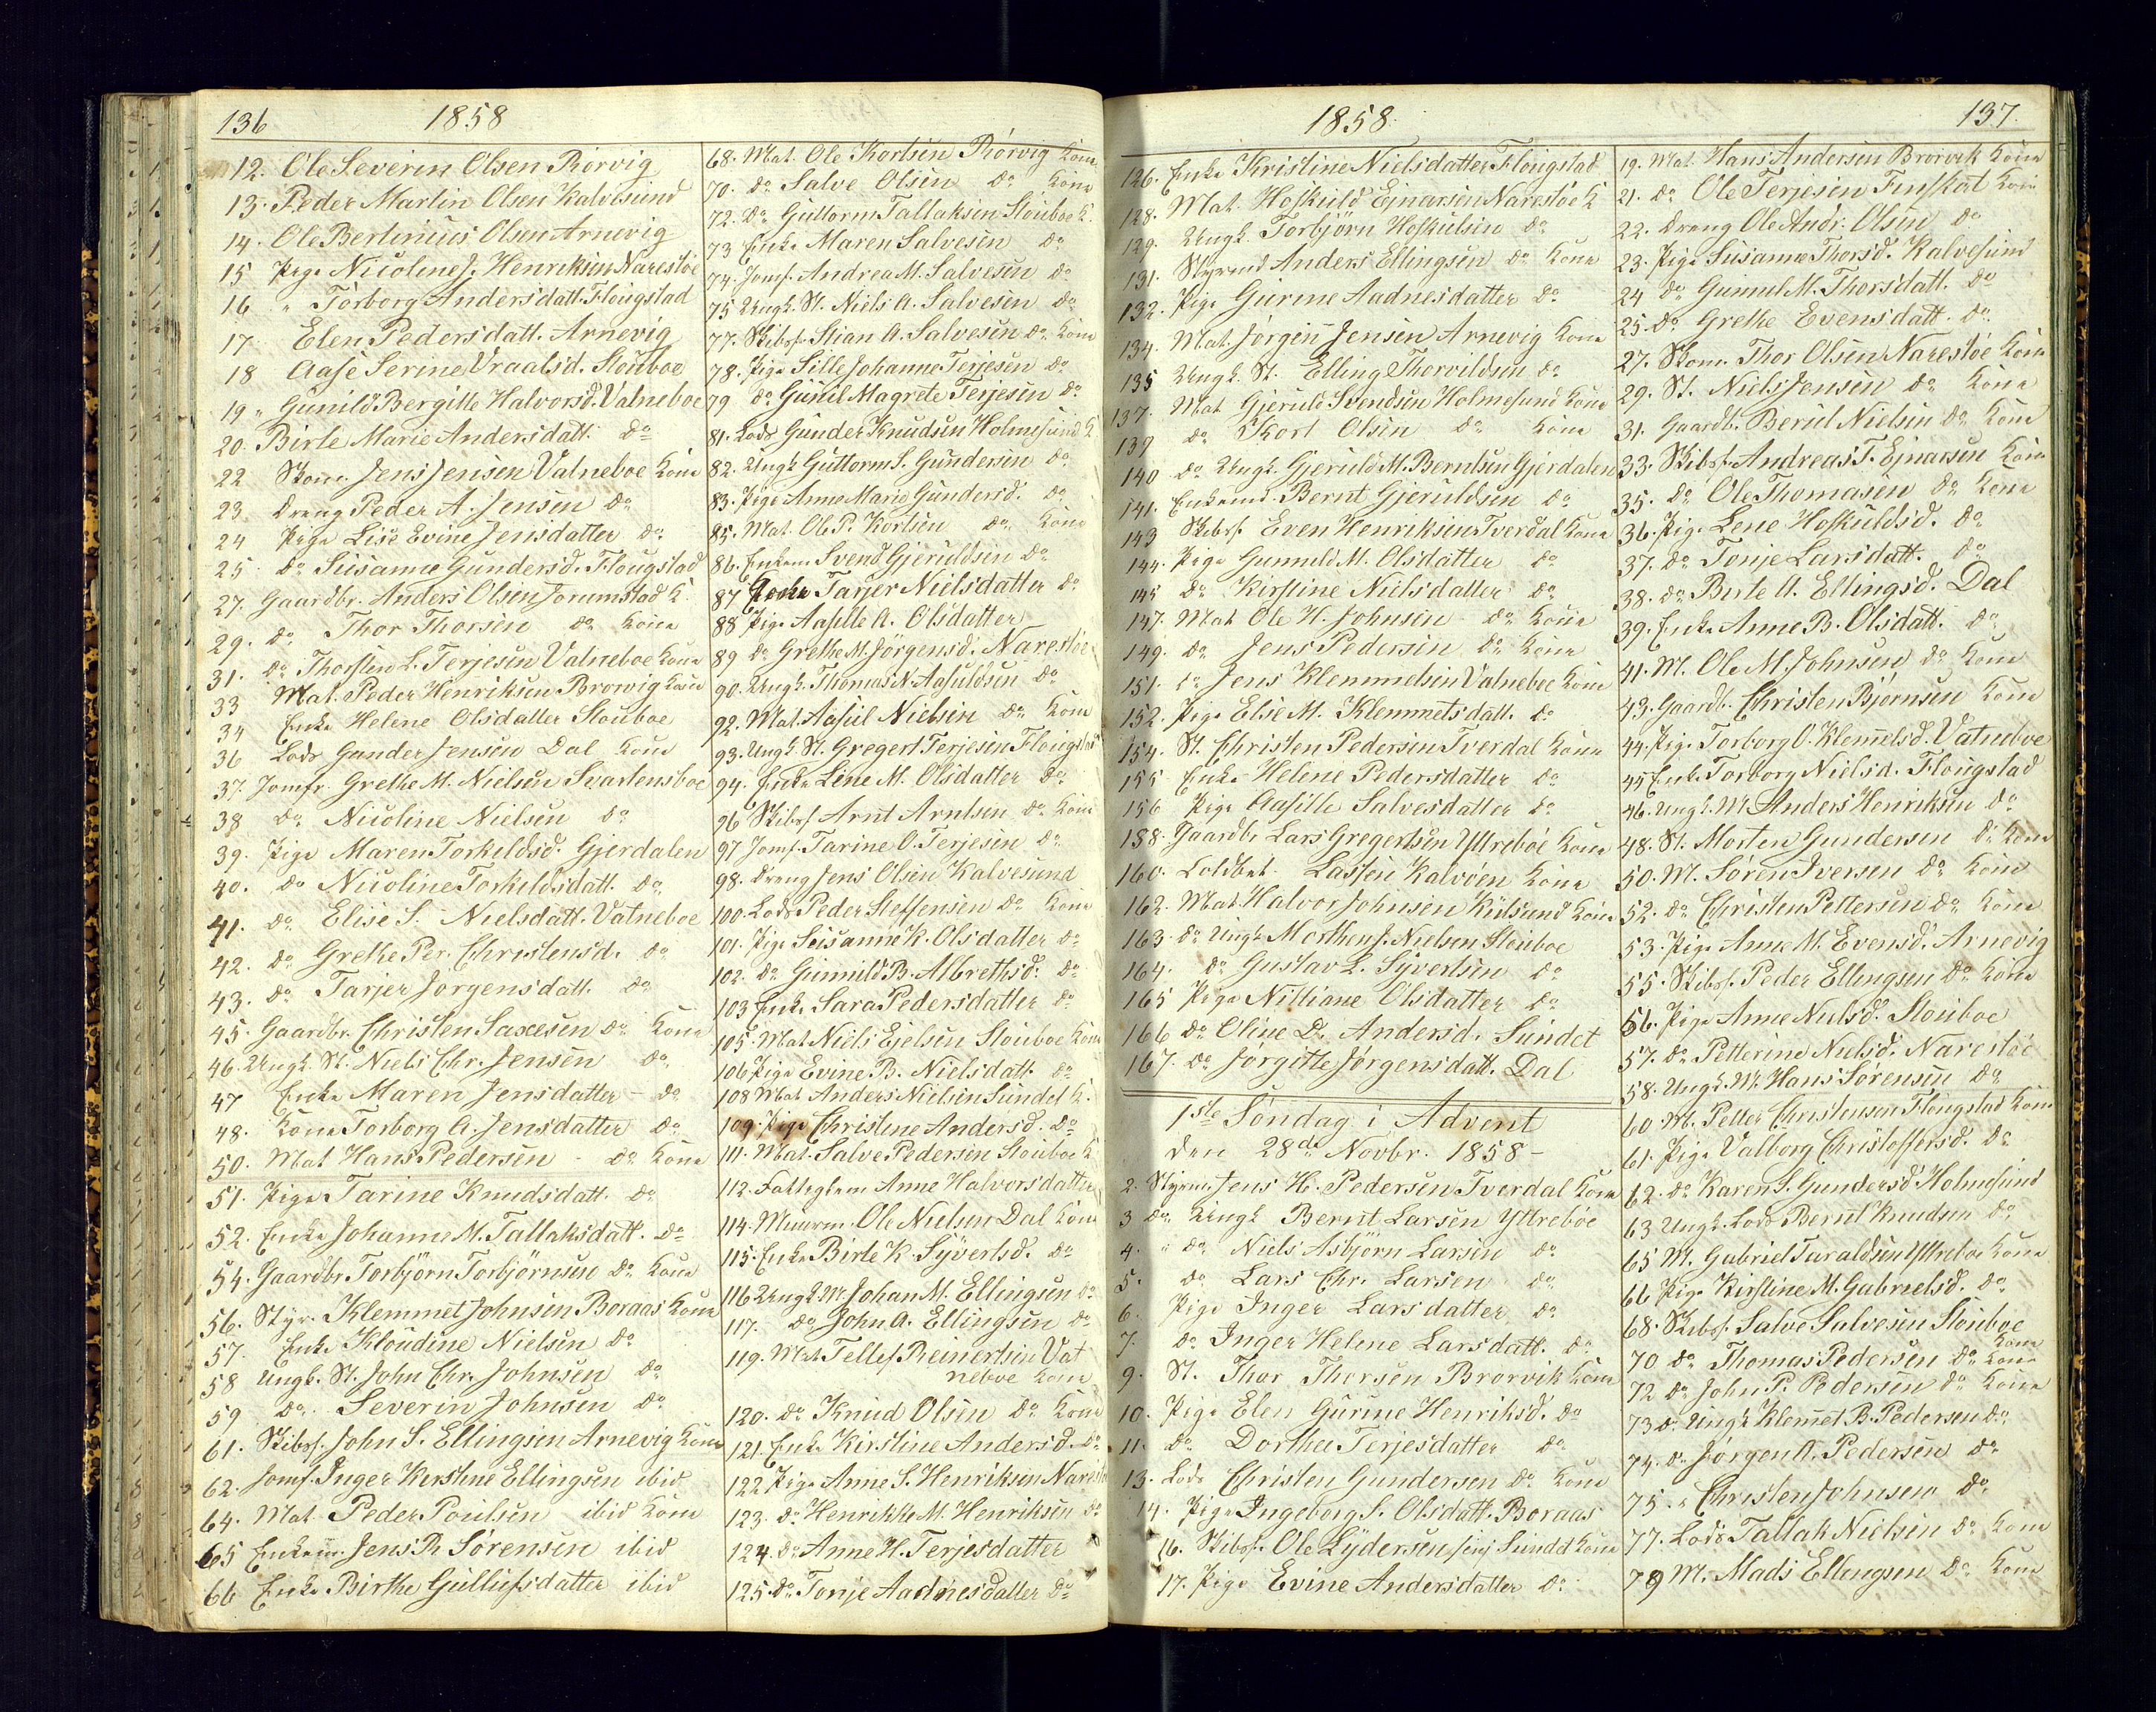 136 1858
12. Ole Severin Olsen Rørvig
13. Peder Martin Olsen Kalvesund
14. Ole Bertinius Olsen Arnevig
15 Pige Nicoline J. Henriksen Narestøe
16 " Torborg Andersdatt. Flougstad
17 Elen Pedersdatt. Arnevig
18 Aase Serine Vraalsd. Stouboe
19 " Gunild Bergitte Halvorsd. Vatneboe
20. Birte Marie Andersdatt. do
22 Skom. Jens Jensen Vatneboe Kone
23 Dreng Peder A. Jensen do
24 Pige Lise Evine Jensdatter do
25 do Susanne Gundersd. Flougstad
27. Gaardbr. Anders Olsen Jorumstad K.
29. do Thor Thorsen do Kone
31. do Thorsten L. Terjesen Vatneboe Kone
33 Mat. Peder Henriksen Brorvig Kone
34 Enke Helene Olsdatter Stouboe
36 Lods Gunder Jensen Dal Kone
37. Jomfr Grethe M. Nielsen Svartensboe
38 do Nicoline Nielsen do
39. Pige Maren Torkeldsd. Gjerdalen
40. do Nicoline Torkildsdatt. do
41. do Elise S. Nielsdatt. Vatneboe
42. do Grethe Per. Christensd. do
43. do Tarjer Jorgensdatt. do
45. Gaardbr. Christen Saxesen do Kone
46. Ungk. St. Niels Chr. Jensen do
47 Enke Maren Jensdatter - do
48. Kone Torborg A. Jensdatter do
50. Mat Hans Pedersen - do Kone
51. Pige Tarine Knudsdatt. do
52. Enke Johanne M. Tallaksdatt. do
54. Gaardbr. Torbjörn Torbjörnsen do Kone
56. Styr. Klemmet Johnsen Boraas Kone
57. Enke Kloudine Nielsen do
58 Ungk. St. John Chr. Johnsen do
59 do Severin Johnsen do
61. Skibsf. John S. Ellingsen Arnevig Kone
62. Jomf. Inger Kirstine Ellingsen ibid
64. Mat Peder Poulsen ibid Kone
65 Enkem. Jens P. Sörensen ibid
66 Enke Birthe Gullufsdatter ibid
68. Mat. Ole Kortsen Rörvig Kone
70. do Salve Olsen do Kone
72. do Guttorm Tallaksen Stouboe K.
73 Enke Maren Salvesen do
74. Jomf. Andrea M. Salvesen do
75 Ungk. St. Niels A. Salvesen do
77. Skibsf. Stian A. Salvesen do Kone
78. Pige Sille Johanne Terjesen do
79 do Gunil Magrete Terjesen do
81. Lods Gunder Knudsen Holmesund K
82. Ungk Guttorm S. Gundersen do
83. Pige Anne Marie Gundersd. do
85. Mat. Ole P. Kortsen do Kone
86. Enkem. Svend Gjeruldsen do
87 Tarjer Nielsdatter do
88 Pige Aasille A. Olsdatter
89 do Grethe M. Jörgensd. Narestöe
90. Ungk. Thomas N. Aasuldsen do
92. Mat. Aasul Nielsen do Kone
93. Ungk. St. Gregert Terjesen Flougstad
94. Enke Line M. Olsdatter do
96 Skibsf. Arnt Arntsen do Kone
97 Jomf. Tarine O. Terjesen do
98. Dreng Jens Olsen Kalvesund
100. Lods Peder Steffensen do Kone
101. Pige Susanne K. Olsdatter do
102. do Gunnild B. Albrethsd. do
103 Enke Sara Pedersdatter do
105. Mat Niels Ejelsen Stouboe Kone
106 Pige Evine B. Nielsdatt. do
108 Mat Anders Nielsen Sundet K.
109. Pige Christine Andersd. do
111. Mat. Salve Pedersen Stouboe K
112. Fattighem Anne Halvorsdatter
114. Muurm. Ole Nielsen Dal Kone
115. Enke Birte K. Syvertsd. do
116 Ungk. M. Johan M. Ellingsen do
117. do John A. Ellingsen do
119. Mat Tellef Reinertsen Vat
neboe Kone
120. do Knud Olsen do Kone
121. Enke Kirstine Andersd. do
122 Pige Anne S. Henriksen Narestø
123. do Henrikke M. Henriksen do
124. do Anne H. Terjesdatter
125. do Tonje Aadnesdatter do
1858. 137.
126. Enke Kristine Nielsdatter Flougstad
128. Mat. Hoskuld Ejnarsen Narestöe K
129. Ungk. Torbjörn Hoskulsen do
131. Styrmd Anders Ellingsen do Kone
132. Pige Gurine Aadnesdatter do
134. Mat. Jörgen Jensen Arnevig Kone
135 Ungk. St. Elling Thorvildsen do
137. Mat Gjeruld Svendsen Holmesund Kone
139 do Kort Olsen do Kone
140 do Ungk. Gjeruld M. Berntsen Gjerdalen
141. Enkemd. Bernt Gjeruldsen do
143 Skibsf. Even Henriksen Tverdal Kone
144. Pige Gunneld M. Olsdatter do
145 do Kirstine Nielsdatter do
147. Mat Ole H. Johnsen do Kone
149. do Jens Pedersen do Kone
151. do Jens Klemmetsen Vatneboe Kone
152. Pige Elise M. Klemmetsdatt. do
154. St. Christen Pedersen Tverdal Kone
155 Enke Helene Pedersdatter do
156 Pige Aasille Salvesdatter do
158. Gaardb. Lars Gregertsen Yttreboe Kone
160. Toldbet. Lassen Kalvöen Kone
162. Mat Halvor Johnsen Kilsund Kone
163. do Ungk. Morthen J. Nielsen Stouboe
164. do Gustav L. Syvertsen do
165 Pige Nilliane Olsdatter do
166 do Oline D. Andersd. Sundet
167. do Jorgitte Jörgensdatt. Dal
1ste Söndag i Advent
den 28de Novbr. 1858 -
2. Styrm. Jens H. Pedersen Tverdal Kone
3 do Ungk Bernt Larsen Yttreböe
4. " do Niels Asbjörn Larsen do
5. do Lars Chr. Larsen do
6. Pige Inger Larsdatter do
7. do Inger Helene Larsdatt. do
9. St. Thor Thorsen Brorvik Kone
10. Pige Elen Gurine Henriksd. do
11. do Dorthea Terjesdatter do
13. Lods Christen Gundersen do Kone
14. Pige Ingeborg S. Olsdatt. Boraas
16. Skibsf. Ole Lydersen senj Sundet Kone
17. Pige Evine Andersdatter do
19. Mat. Hans Andersen Brorvik Kone
21. do Ole Terjesen Finskat Kone
22. Dreng Ole Andr. Olsen do
23. Pige Susanne Thorsd. Kalvesund
24 do Gunnul M. Thorsdatt. do
25. do Grethe Evensdatt. do
27. Skom. Thor Olsen Narestoe Kone
29. St. Niels Jensen do Kone
31. Gaardb. Berul Nielsen do Kone
33. Skibsf. Andreas T. Ejnarsen Kone
35. do Ole Thomasen do Kone
36. Pige Lene Hoskuldsd. do
37. do Tonje Larsdatt. do
38. do Birte A. Ellingsd. Dal
39. Enke Anne B. Olsdatt. do
41. M. Ole M. Johnsen do Kone
43. Gaardb. Christen Bjørnsen Kone
44. Pige Torborg O. Klemetsd. Vatneboe
45 Enke Torborg Nielsd. Flougstad
46. Ungk. M. Anders Henriksen do
48. St. Morten Gundersen do Kone
50. M. Sören Iversen do Kone
52. do Christen Pettersen do Kone
53. Pige Anne M. Evensd. Arnevig
55. Skibsf. Peder Ellingsen do Kone
56. Pige Anne Nielsd. Stouboe
57. do Petterine Nielsd. Narestöe
58. Ungk. M. Hans Sörensen do
60 M. Petter Christensen Flougstad Kone
61. Pige Valborg Christoffersd. do
62. do Karen S. Gundersd Holmesund
63 Ungk. Lods Bernt Knudsen do
65 M. Gabriel Taraldsen Yttreboe Kone
66 Pige Kirstine M. Gabrielsd. do
68. Skibsf. Salve Salvesen Stouboe
Kone
70 do Thomas Pedersen do Kone
72 do John P. Pedersen do Kone
73 do Ungk Klemet B. Pedersen do
74. do Jörgen A. Pedersen do
75. " Christen Johnsen do
77. Lods Tallak Nielsen do Kone
79 M. Mads Ellingsen do Kone